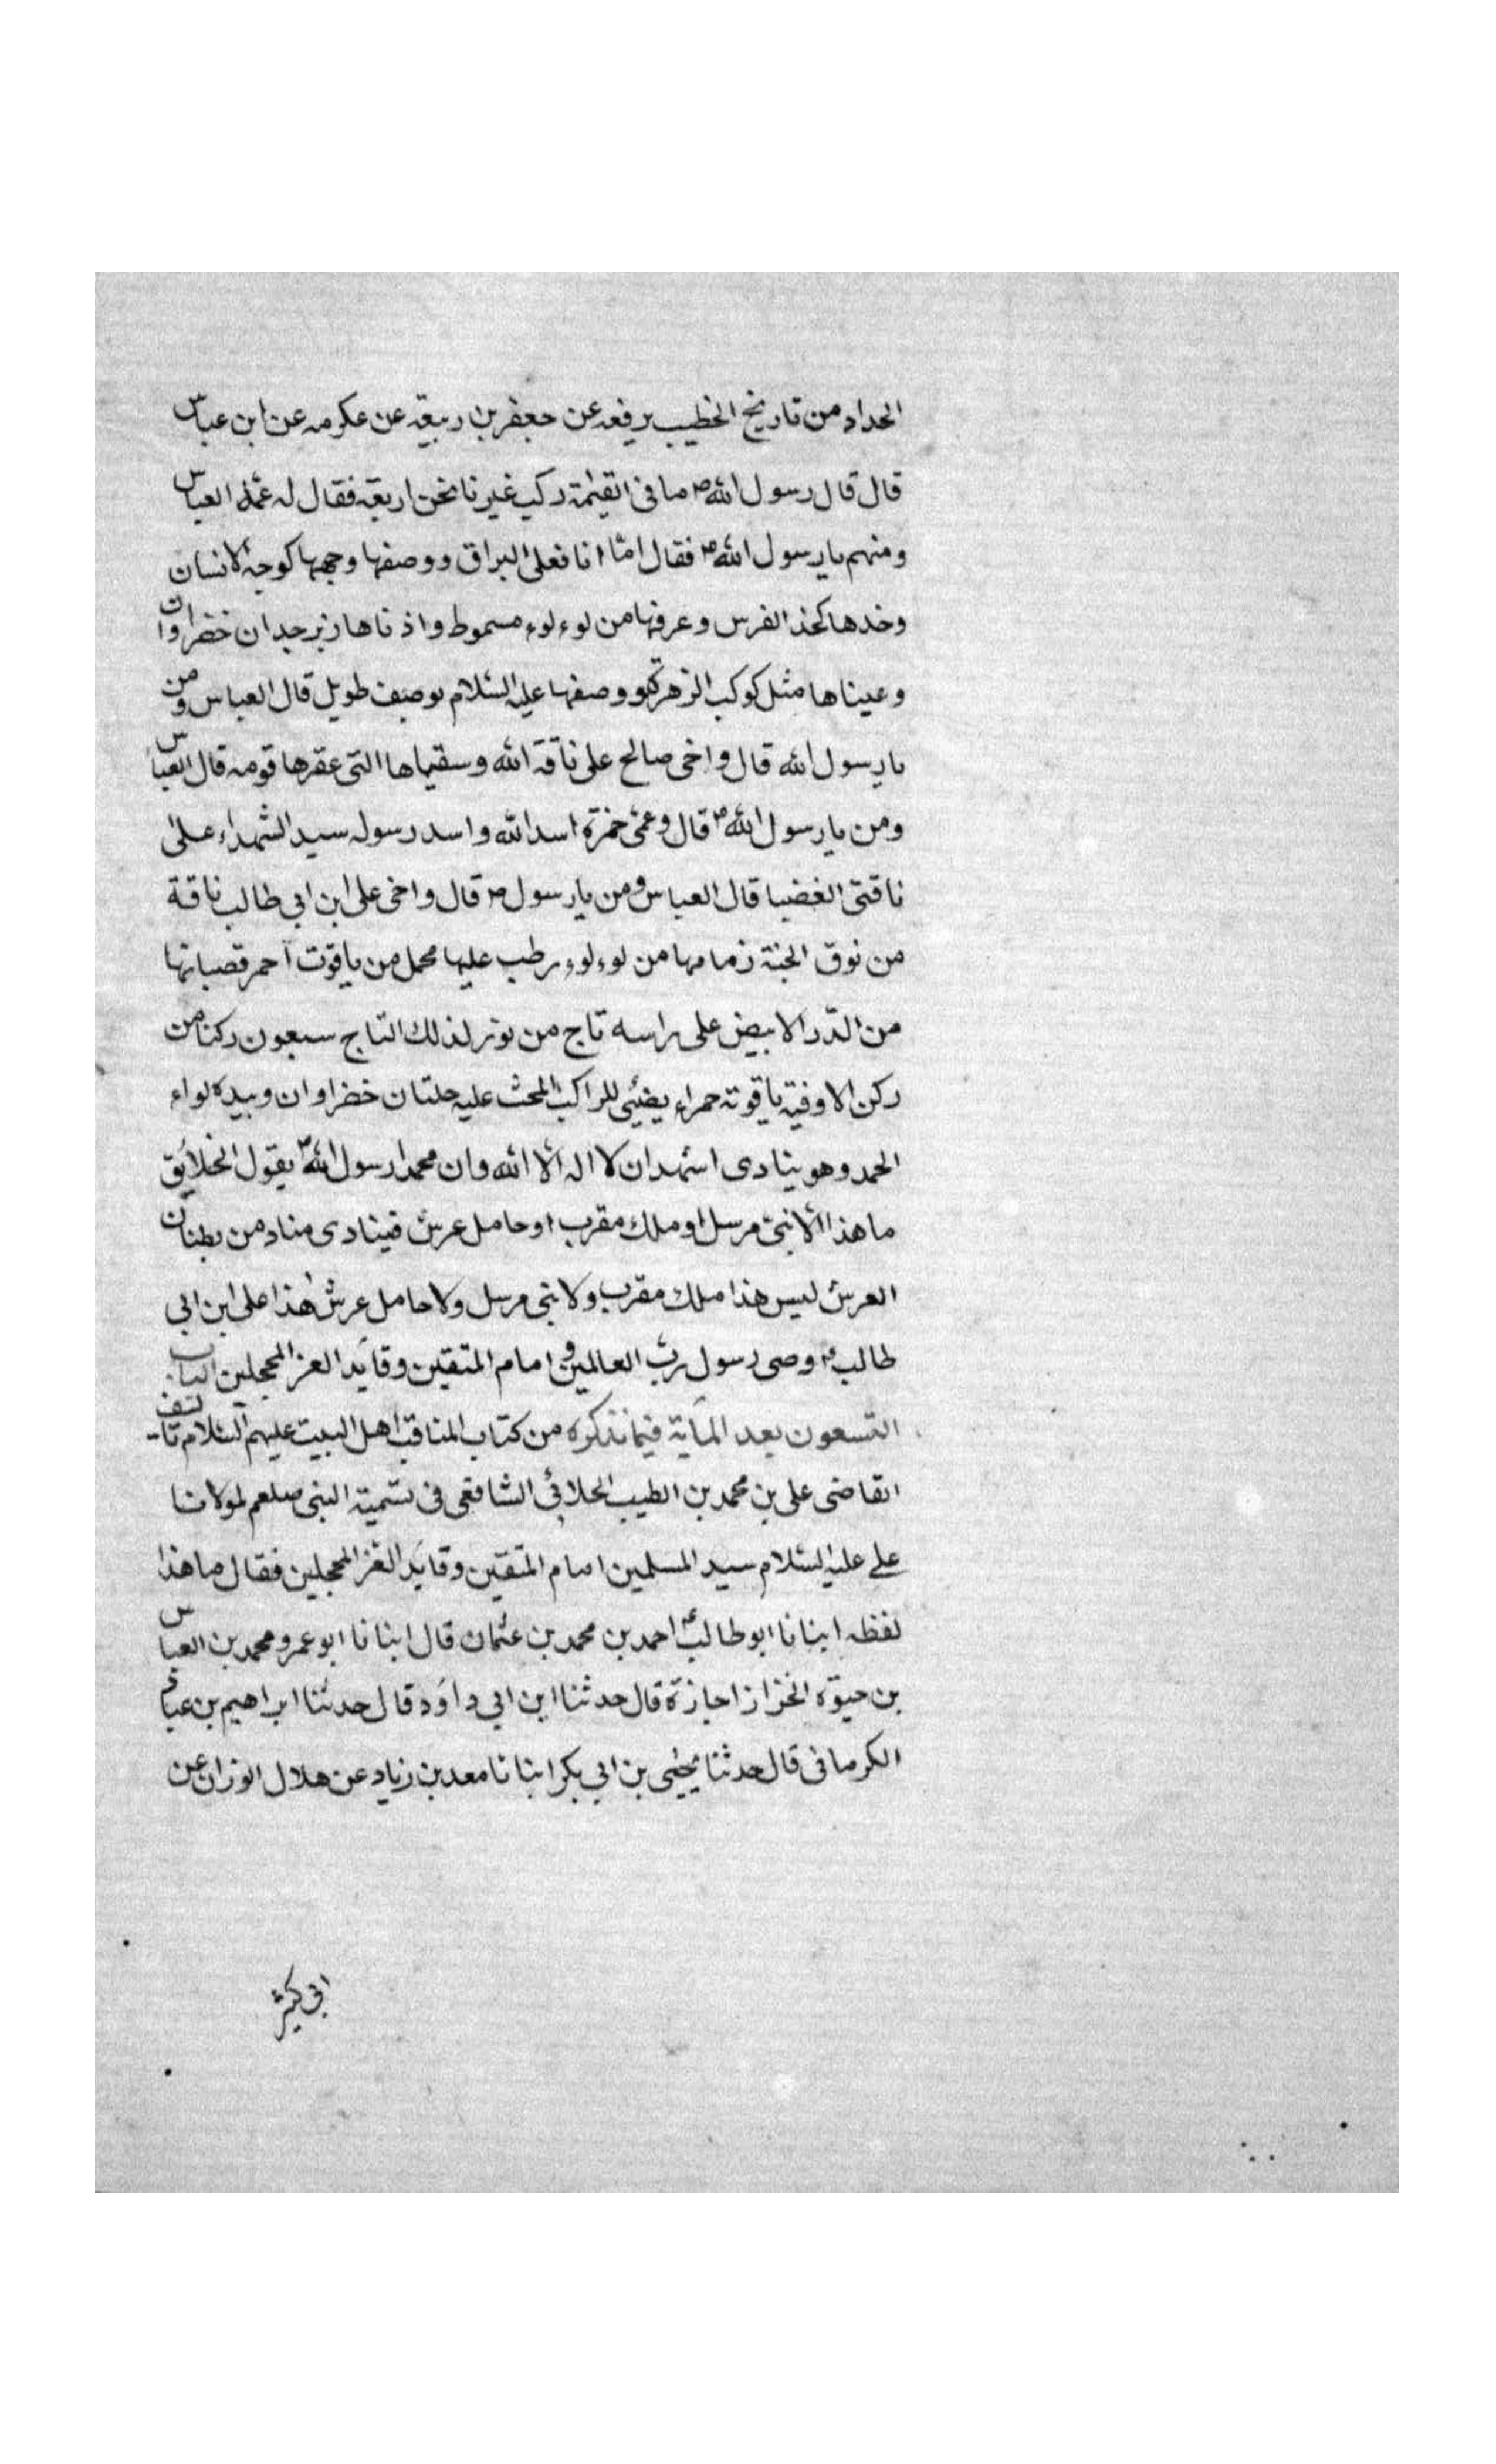 الحداد من تاريخ الخطيب يرفعه عن جعفر بن ربيعة عن عكرمه عن ابن عباس
قال قال رسول الله ص ما فى القيٰمة ركب غيرنا نحن اربعة فقال له عمّه العباس
ومنهم يا رسول الله ص فقال امّا انا فعلى البراق ووصفها وجهها كوجه الانسان
وخدها كخد الفرس وعرفها من لوءلوء مسموط واذناها زبرجدان خضراوان
وعيناها مثل كوكب الزهرة ووصفها عليه السّلام بوصف طويل قال العباس ومن
يا رسول الله قال واخى صالح على ناقة الله وسقياها التى عقرها قومه قال العباس
ومن يا رسول الله ص قال وعمّى حمزة اسد الله واسد رسوله سيد الشهداء على
ناقتى الغضبا قال العباس ومن يا رسول ص قال واخى على ابن ابي طالب ناقة
من نوق الجنة زمامها من لوءلوء رطب عليها محمل من ياقوت احمر قصباتها
من الدّر الابيض على راسه تاج من نور لذلك التاج سبعون ركنا من
ركن الا وفيه ياقوتة حمراء يضيئى للراكب المحث عليه حلتان خضراوان وبيده لواء
الحمد وهو ينادى اشهد ان لا اله الّا الله وان محمدا رسول الله ص يقول الخلائق
ما هذا الّا نبىّ مرسل او ملك مقرب او حامل عرش فينادى مناد من بطنان
العرش ليس هذا ملك مقرب ولا نبى مرسل ولا حامل عرش هٰذا على ابن ابي
طالب وصى رسول ربّ العالمين و امام المتقين وقايد الغر المحجلين الباب
التسعون بعد المآية فيما نذكره من كتاب المناقب اهل البيت عليهم السّلام تاليف
القاضى على بن محمد بن الطيب الجلابي الشافعى فى تسمية النبى صلعم لمولانا
على عليه السّلام سيد المسلمين امام المتقين وقايد الغر المحجلين فقال ما هذا
لفظه ابنانا ابو طالب احمد بن محمد بن عثمان قال ابنانا ابو عمرو محمد بن العباس
بن حيوة الخزاز اجازة قال حدثنا ابن ابي داود قال حدثنا ابراهيم بن عباد
الكرمانى قال حدثنا يحيٰى بن ابي بكر ابنانا معد بن زياد عن هلال الوزان عن
ابى كثير